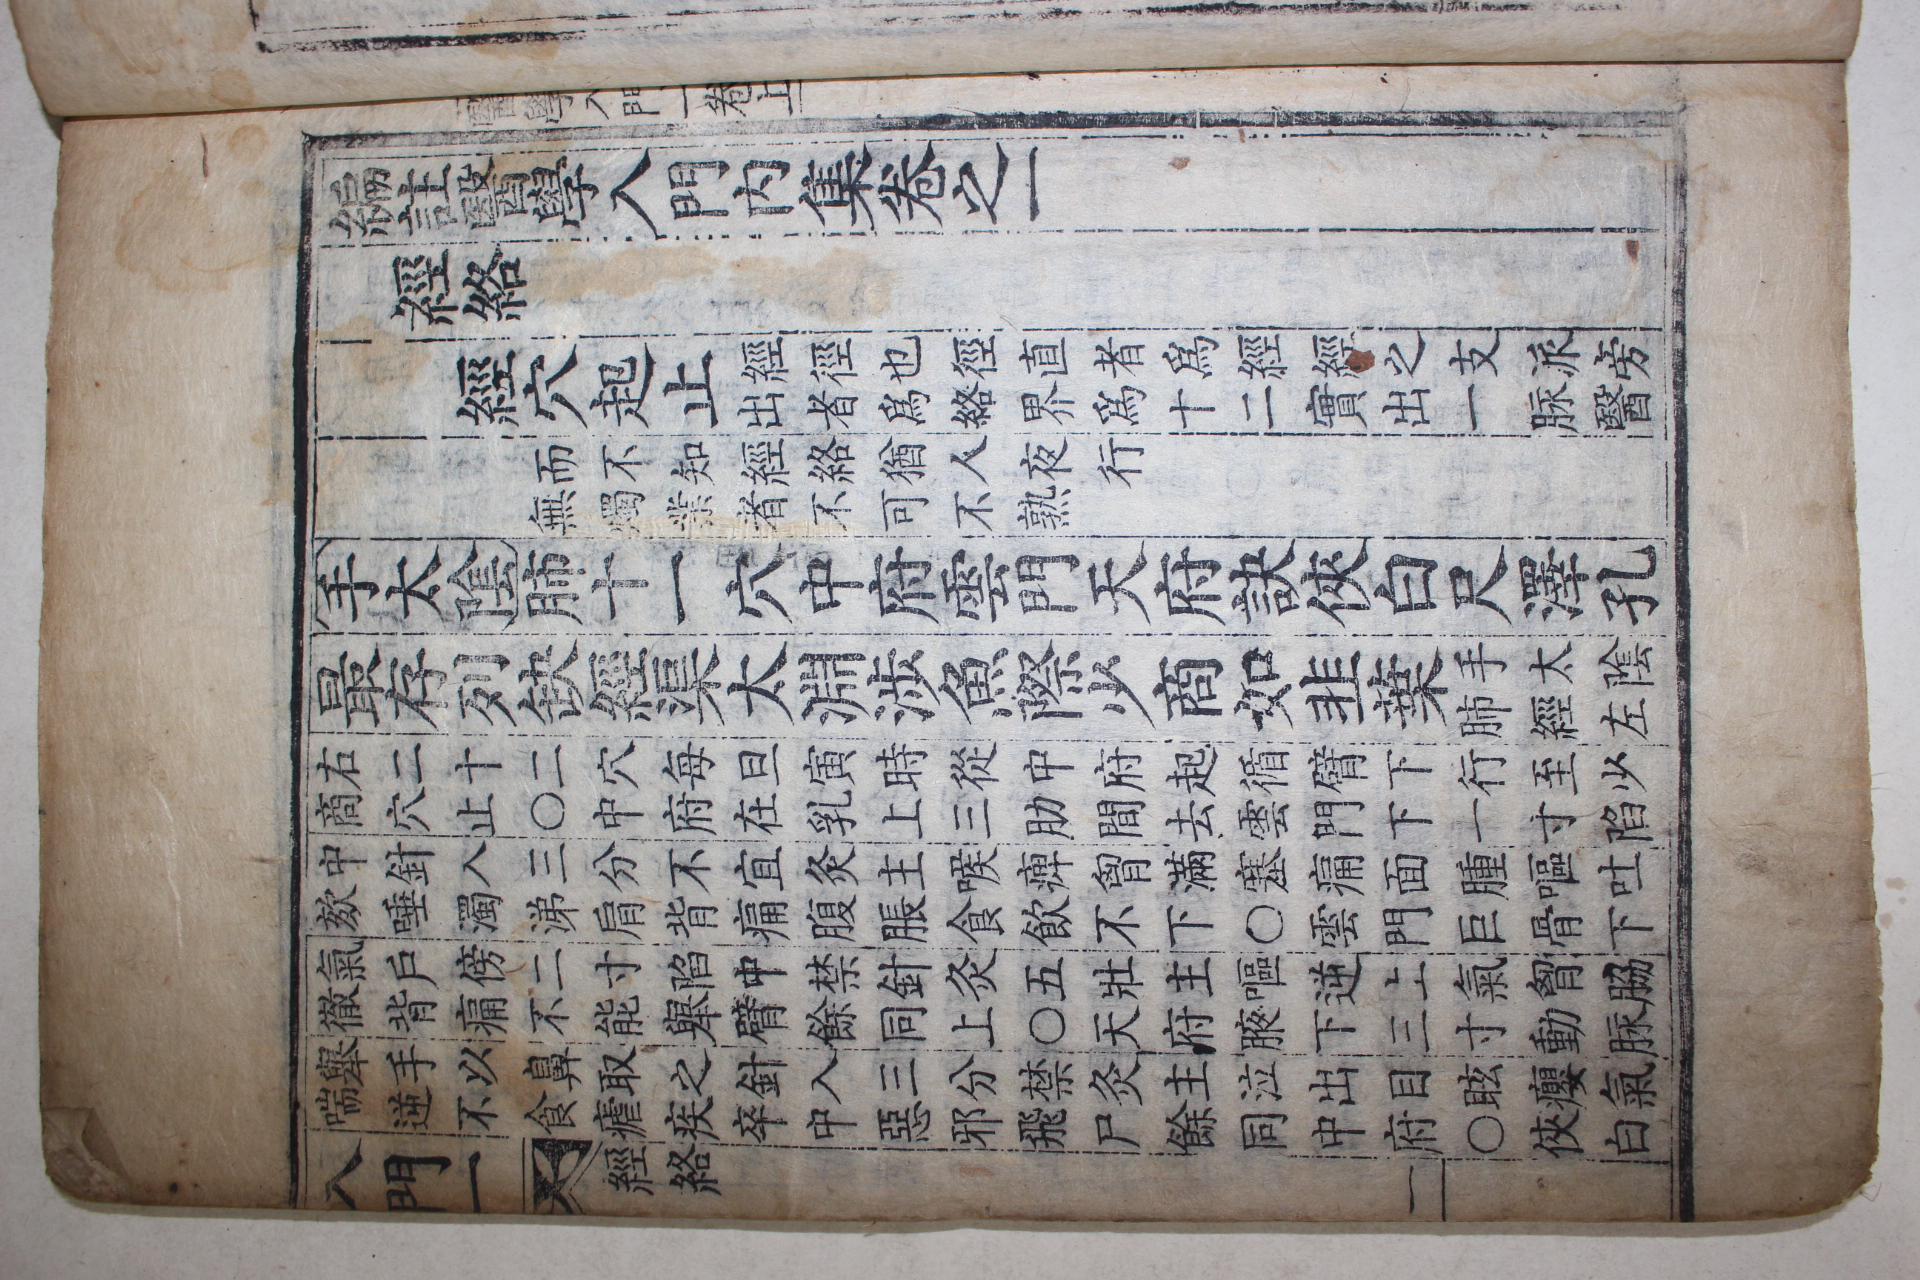 編註醫學入門內集卷之一
經絡
經穴起止
經徑也徑直者爲經經之支派旁
出者爲絡界爲十二實出一脉醫
而不知經絡猶人夜行
無燭業者不可不熟
手太陰肺十一穴中府雲門天府訣俠白尺澤孔
最存列缺經渠太淵涉魚際少商如韭葉
手太陰
肺經左
右二十二穴每旦寅時從中府起循臂下行至少
商穴止〇中府在乳上三肋間去雲門下一寸陷
中針入三分不宜灸主喉痺胷滿塞痛面腫嘔吐
欬唾濁涕肩背痛腹脹食飮不下〇雲門巨骨下
氣戶傍二寸陷中禁針灸五壯主嘔逆上氣胷脇
徹背痛不能舉臂餘同上〇天府腋下三寸動脉
舉手以鼻取之針入三分禁灸主泣出目眩癭氣
喘逆不食瘧疾卒中惡邪飛尸餘同中府〇俠白
入門一
經絡
一
醫學入門一卷上